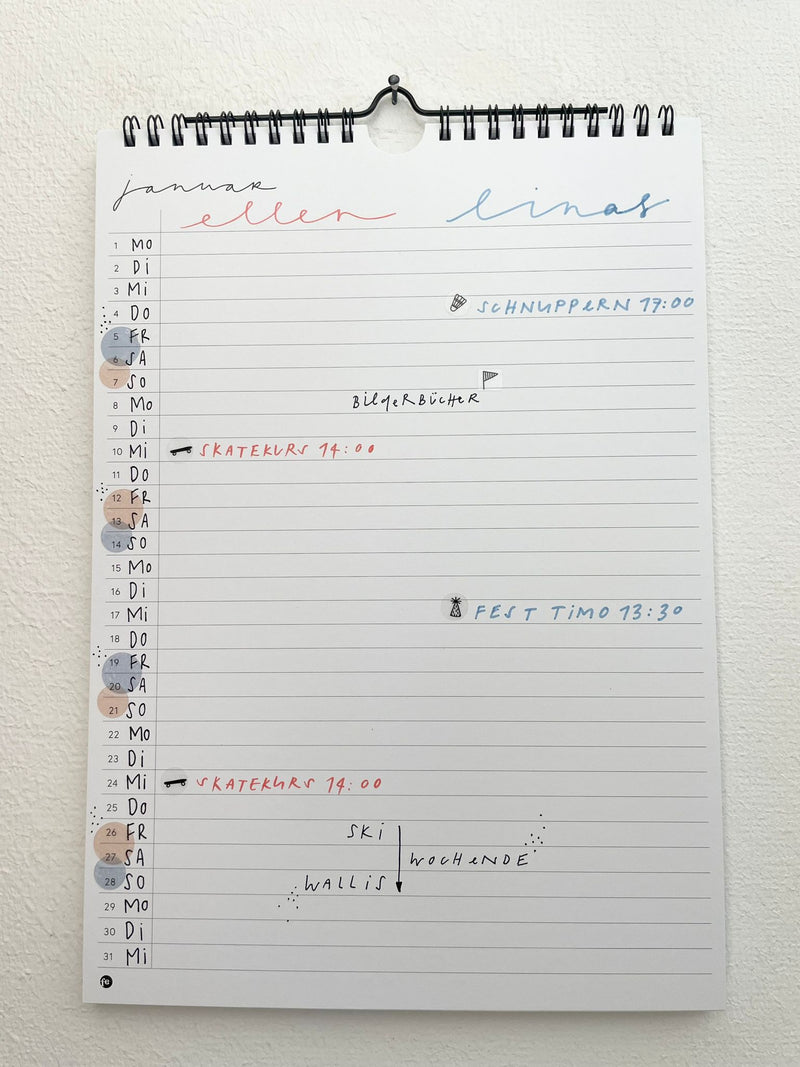 januar
ellen linas
1 MO
2 Di
3 Mi
4 DO SCHNUPPERN 17:00
5 FR
6 SA
7 SO
8 MO BilderBÜCHER
9 Di
10 Mi SKATEKURS 14:00
11 DO
12 FR
13 SA
14 SO
15 MO
16 Di
17 Mi FEST TiMO 13:30
18 DO
19 FR
20 SA
21 SO
22 MO
23 Di
24 Mi SKATEKURS 14:00
25 DO
26 FR SKi
27 SA WOCHeNDE
28 SO WALLiS
29 MO
30 Di
31 Mi
fe